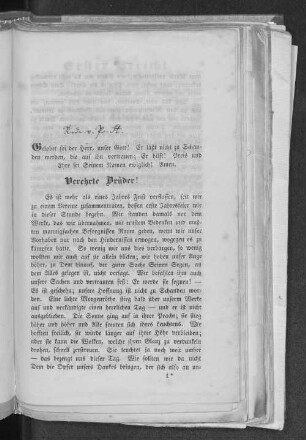 Gelobet sei der Herr, unser Gott! Er läßt nicht zu Schan-
den werden, die auf ihn vertrauen; Er hilft! Preis und
Ehre sei Seinem Namen ewiglich! Amen.
Verehrte Brüder!
Es ist mehr als eines Jahres Frist verflossen, seit wir
zu einem Vereine zusammentraten, dessen erste Jahresfeier wir
in dieser Stunde begehn. Wir standen damals vor dem
Werke, das wir übernahmen, mit ernstem Bedenken und man-
chen mannigfachen Besorgnissen Raum gebend, wenn wir unser
Vorhaben nur nach den Hindernissen erwogen, wogegen es zu
kämpfen hatte. So wenig wir uns dies verbargen, so wenig
wollten wir auch auf sie allein blicken; wir hoben unser Auge
höher, zu Dem hinauf, der guter Sache Seinen Segen, an
dem Alles gelegen ist, nicht versagt. Wir befahlen ihm auch
unser Suchen und vertrauten fest: Er werde sie segnen! —
Es ist geschehn; unsre Hoffnung ist nicht zu Schanden worden.
Eine lichte Morgenröthe stieg bald über unserm Werke
auf und verkündigte einen herrlichen Tag — und er ist nicht
ausgeblieben. Die Sonne ging auf in ihrer Pracht; sie stieg
höher und höher und Alle freuten sich ihres Leuchtens. Wir
hofften, sie würde noch länger auf ihrer Höhe verbleiben;
aber sie kam den Wolken, welche ihren Glanz zu verdunkeln
drohten, schnell zuvor. Sie leuchtet so noch weit umher
— das bezeugt uns dieser Tag. Wie sollten wir da nicht
Dem die Opfer unsers Dankes bringen, der sich also an un-
1*